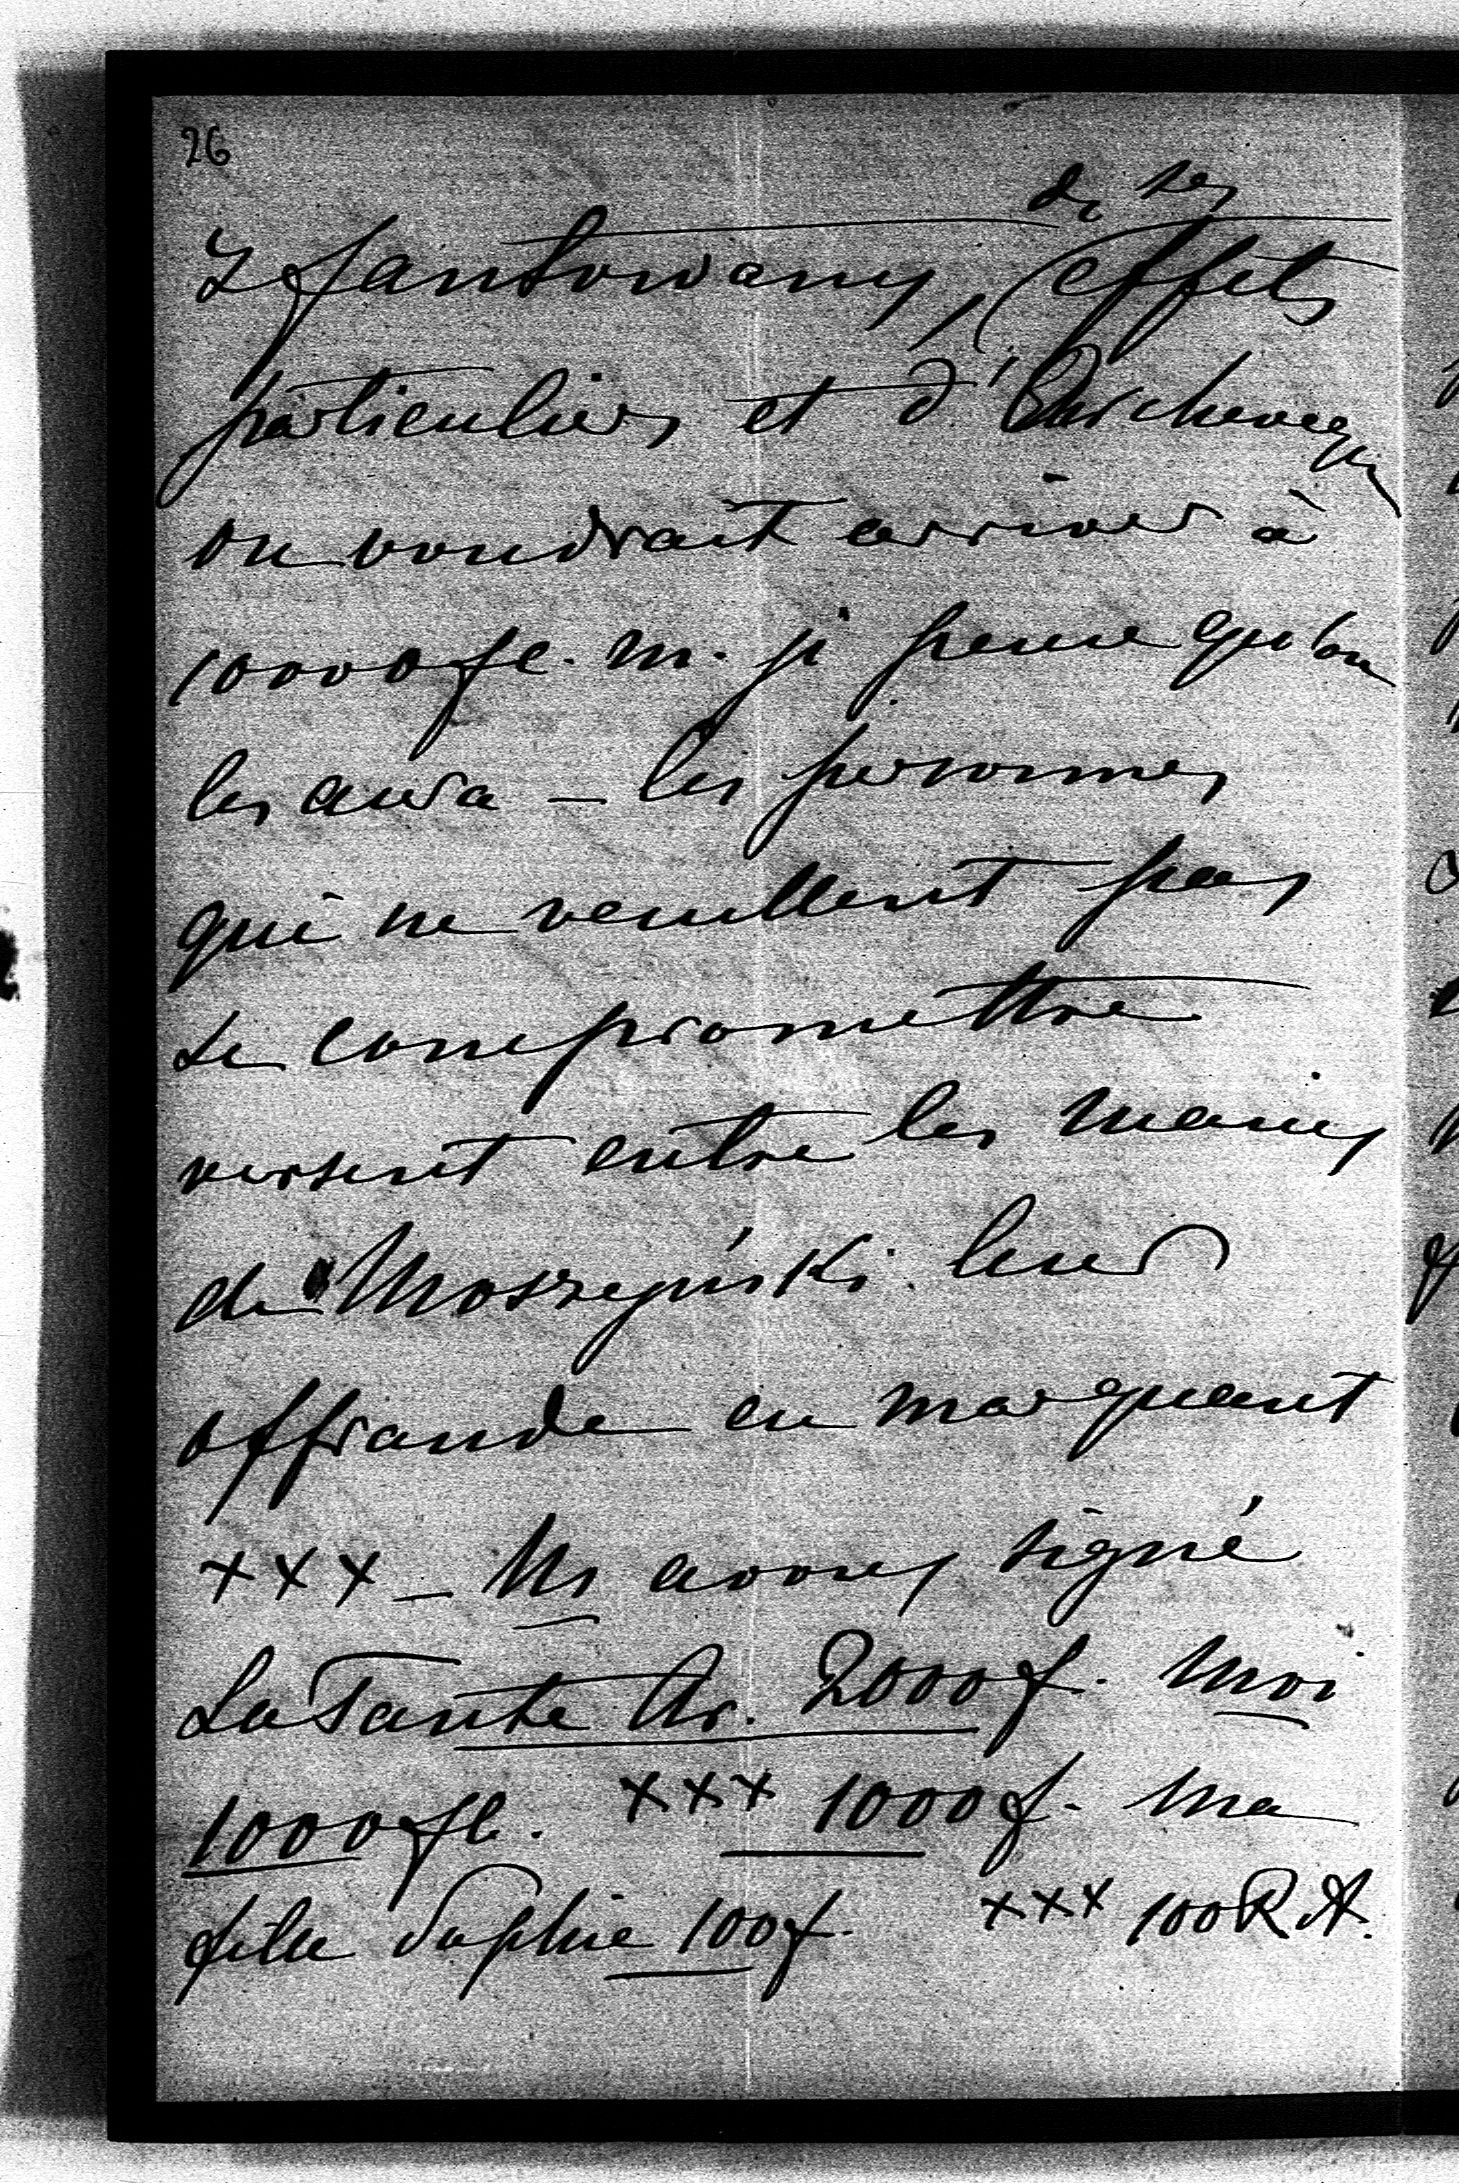 26
de ses
Zfantowany, effets
particuliers et d'Archeveque
on voudrait arriver à
10000 fl. m. je pense qu'on
les aura — les personnes
qui ne veuillent pas
se compromettre
versent entre les mains
de Moszyński leur
offrande en marquant
xxx — Ns avons signé
La Tante Ar. 2000 f. moi
1000 fl. xxx 1000 f. Ma
fille Sophie 100 f. xxx 100 R A.